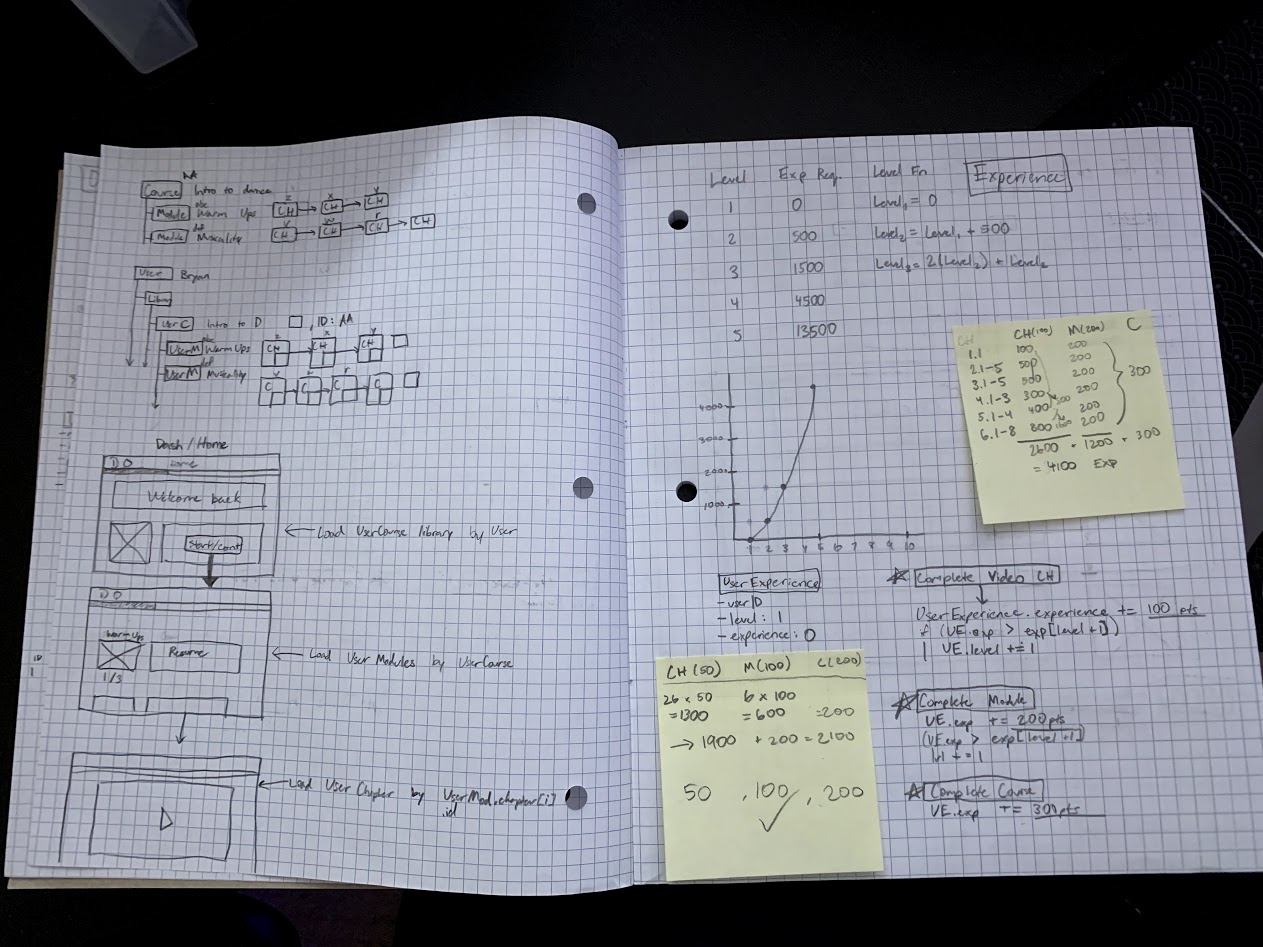 AA
Course Intro to dance
abc
Module Warm Ups
z x y
CH CH CH
def
Module Musicality
v w r
CH CH CH CH
User Bryan
Library
User C Intro to D , ID: AA
abc
User M Warm Ups
z x y
CH CH CH
def
User M Musicality
C C C C
Dash / Home
D O Home
Welcome back
Start/cont
Load UserCourse library by User
D O
Warm Ups
Resume
1/3
Load User Modules by UserCourse
Load User Chapter by UserMod.chapter[i]
.id
Level Exp Req. Level Fn Experience
1 0 Level₁ = 0
2 500 Level₂ = Level₁ + 500
3 1500 Level₃ = 2(Level₂) + Level₂
4 4500
5 13500
CH CH(100) M(200) C
1.1 100 200
2.1-5 500 200
3.1-5 500 200
4.1-3 300 200
5.1-4 400 200
6.1-8 800 200
300
2600 + 1200 + 300
= 4100 Exp
4000
3000
2000
1000
1 2 3 4 5 6 7 8 9 10
User Experience
- userID
- level: 1
- experience: 0
Complete Video CH
UserExperience.experience += 100 pts
if (UE.exp > exp[level+1])
UE.level += 1
Complete Module
UE.exp += 200 pts
(UE.exp > exp[level+1]
+= 1
Complete Course
UE.exp += 300 pts
CH(50) M(100) C(200)
26 x 50 6 x 100
=1300 =600 =200
→ 1900 + 200 = 2100
50 , 100 , 200